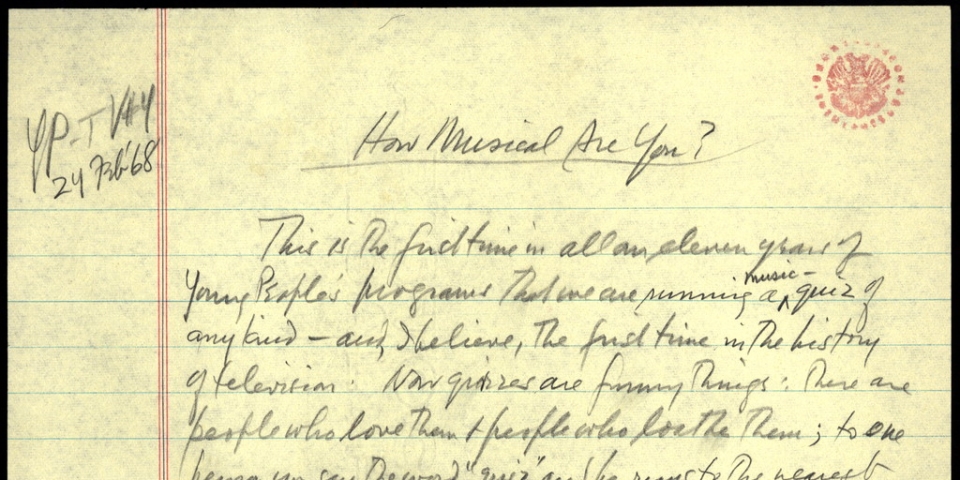 YP-T V#4
24 Feb '68
How Musical Are You?
This is the first time in all our eleven years of
Young People's programs that we are running a music-quiz of
any kind — and, I believe, the first time in the history
of television. Now quizzes are funny things: there are
people who love them & people who loathe them; to one
person you say the word "quiz" and he runs to the nearest